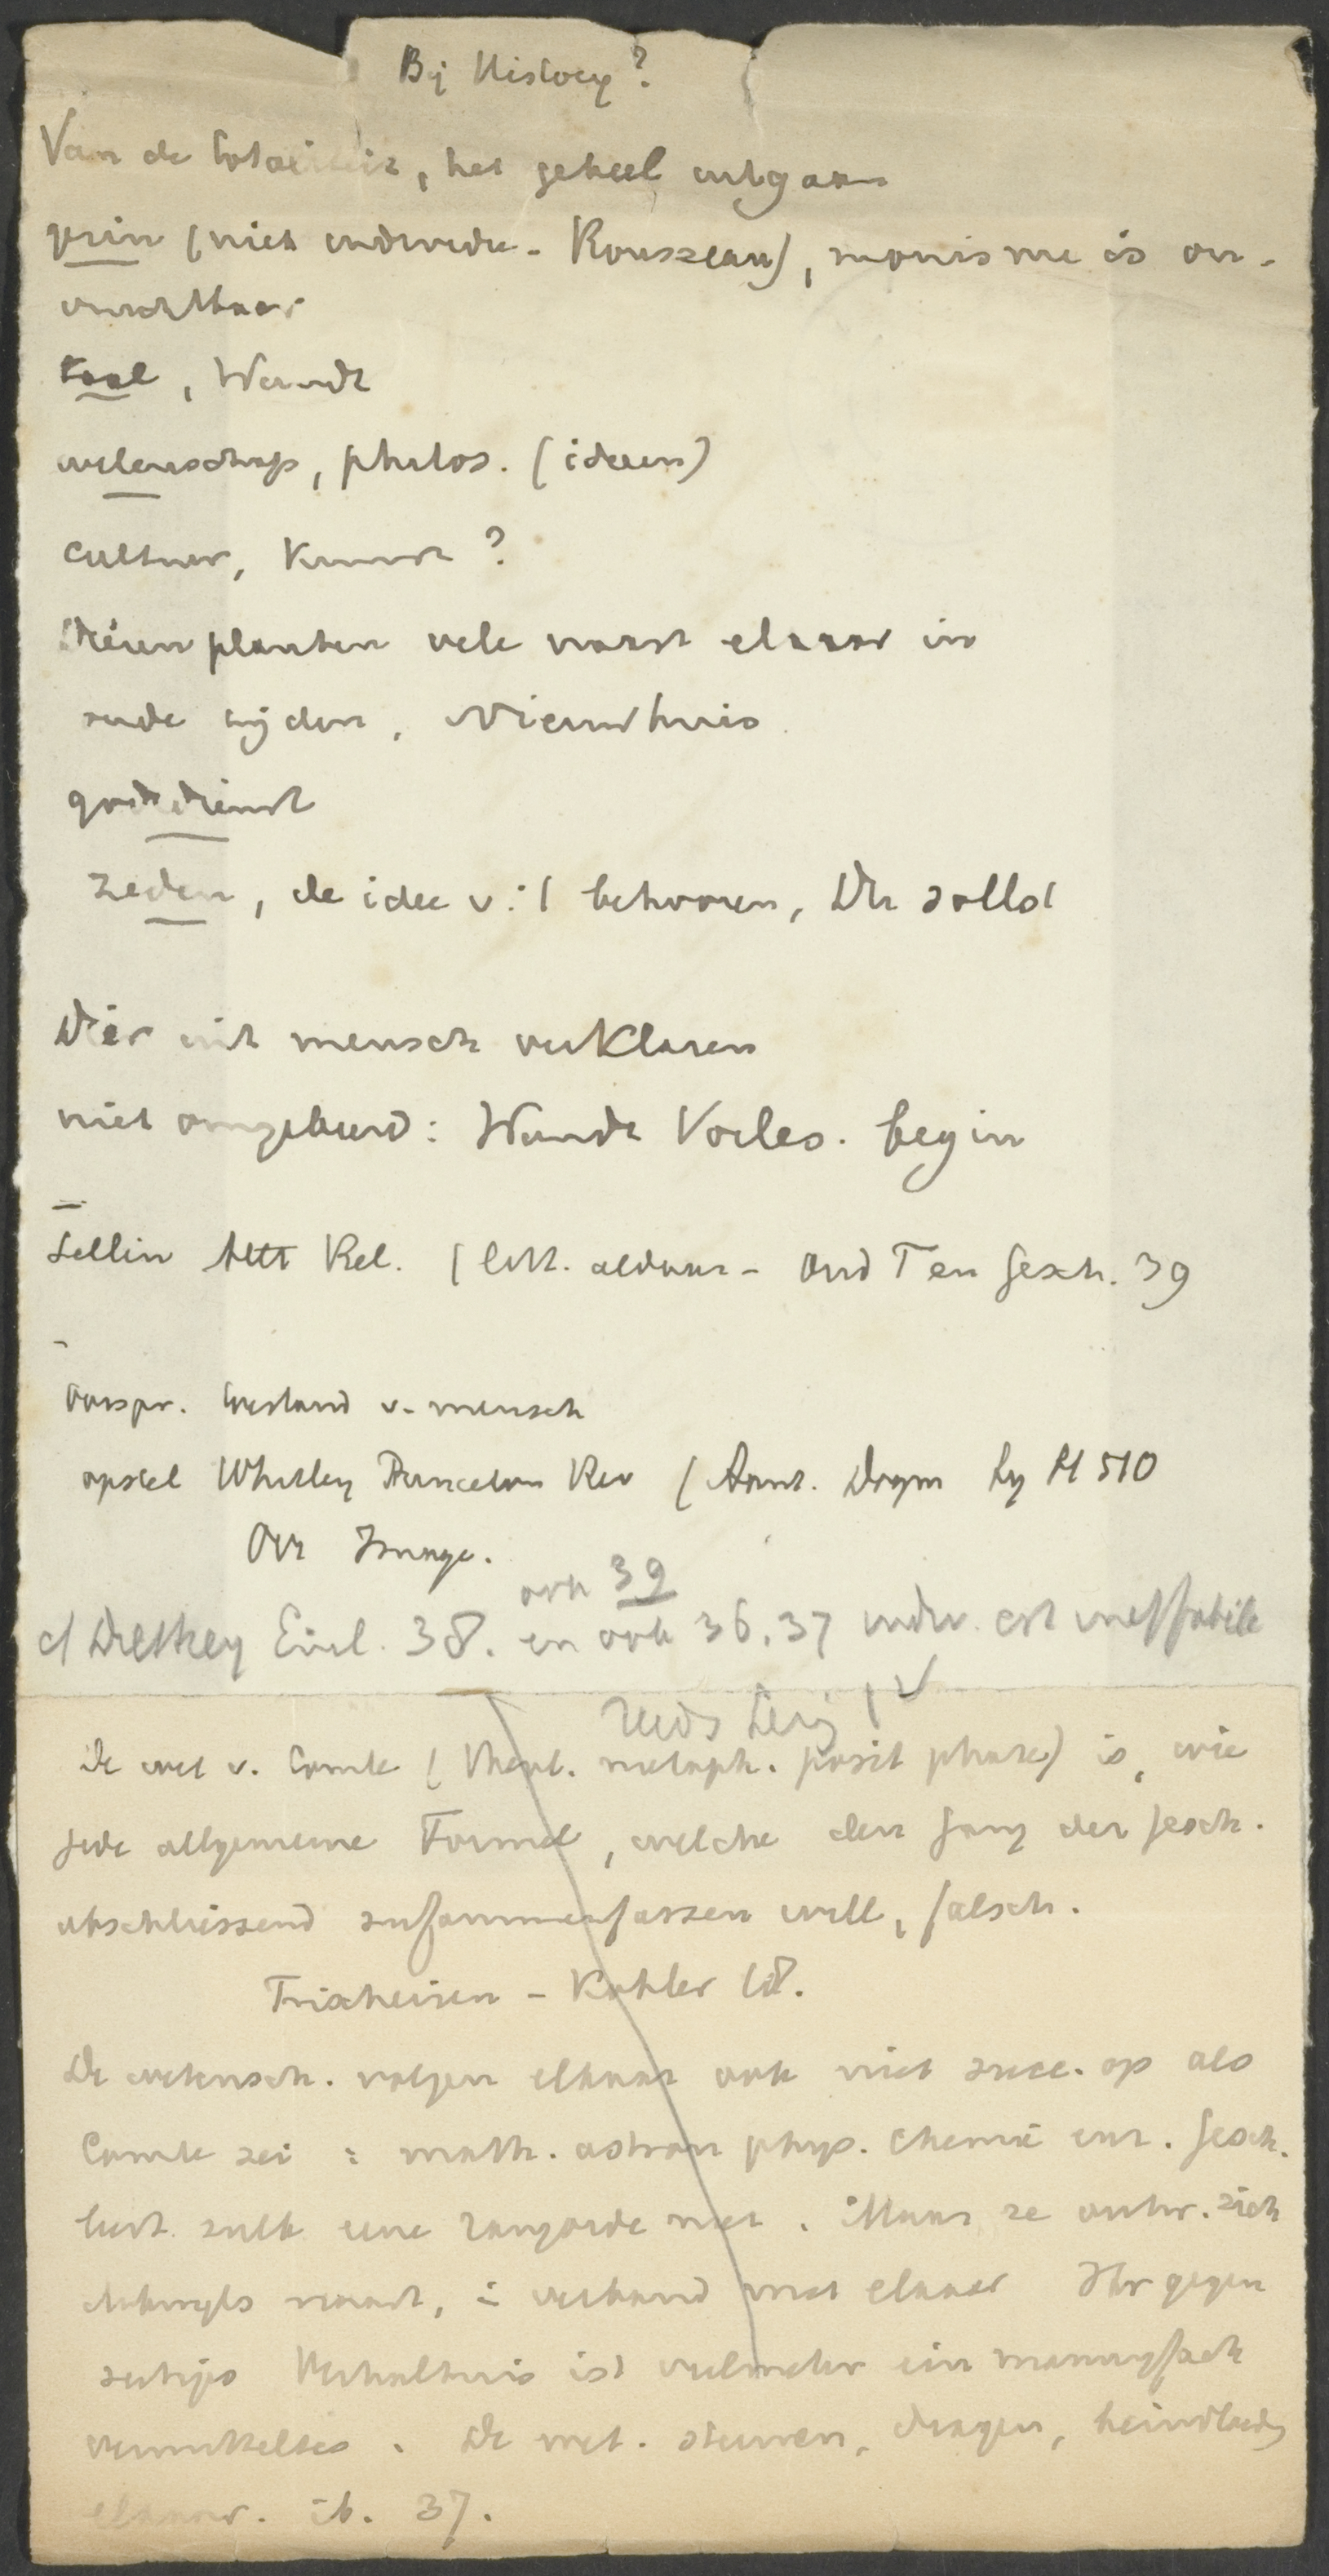 Bij History?
Van de totaliteit, het geheel uitgaan
gezin (niet individu - Rousseau), monisme is on-
vruchtbaar
taal, Wundt
wetenschap, philos. (ideeen)
cultuur, kunst?
Dieren planten vele naast elkaar in
oude tijden, Nieuwhuis
godsdienst
zeden, de idee v.'t behooren, Du sollst
Dier uit mensch verklaren
niet omgekeerd: Wundt Vorles. begin
Sellin Altt Rel. (litt. aldaar - Oud T en Gesch. 39
Oorspr. toestand v. mensch
opstel Whitley Princeton Rev (Aant. Dogm bij H 510
Our Image.
ook 39
cf Dilthey Einl. 38. en ook 36, 37 indiv. est ineffabile
reeds bezig
De wet v. Comte (theol. metaph. posit phase) is, wie
jede allgemeine Formel, welche den Gang der Gesch.
abschliessend zusammenfassen will, falsch.
Frischeisen - Kohler 68.
De wetensch. volgen elkaar ook niet succ. op als
Comte zei: math. astron phys. chemie enz. Gesch.
leert zulk eene rangorde niet. Maar ze ontw. zich
naast, in verband met elkaar Ihr gegen
seitiges Verhaltnis ist vielmehr ein mannigfach
verwickeltes. De wet. steunen, dragen,
elkaar. ib. 37.